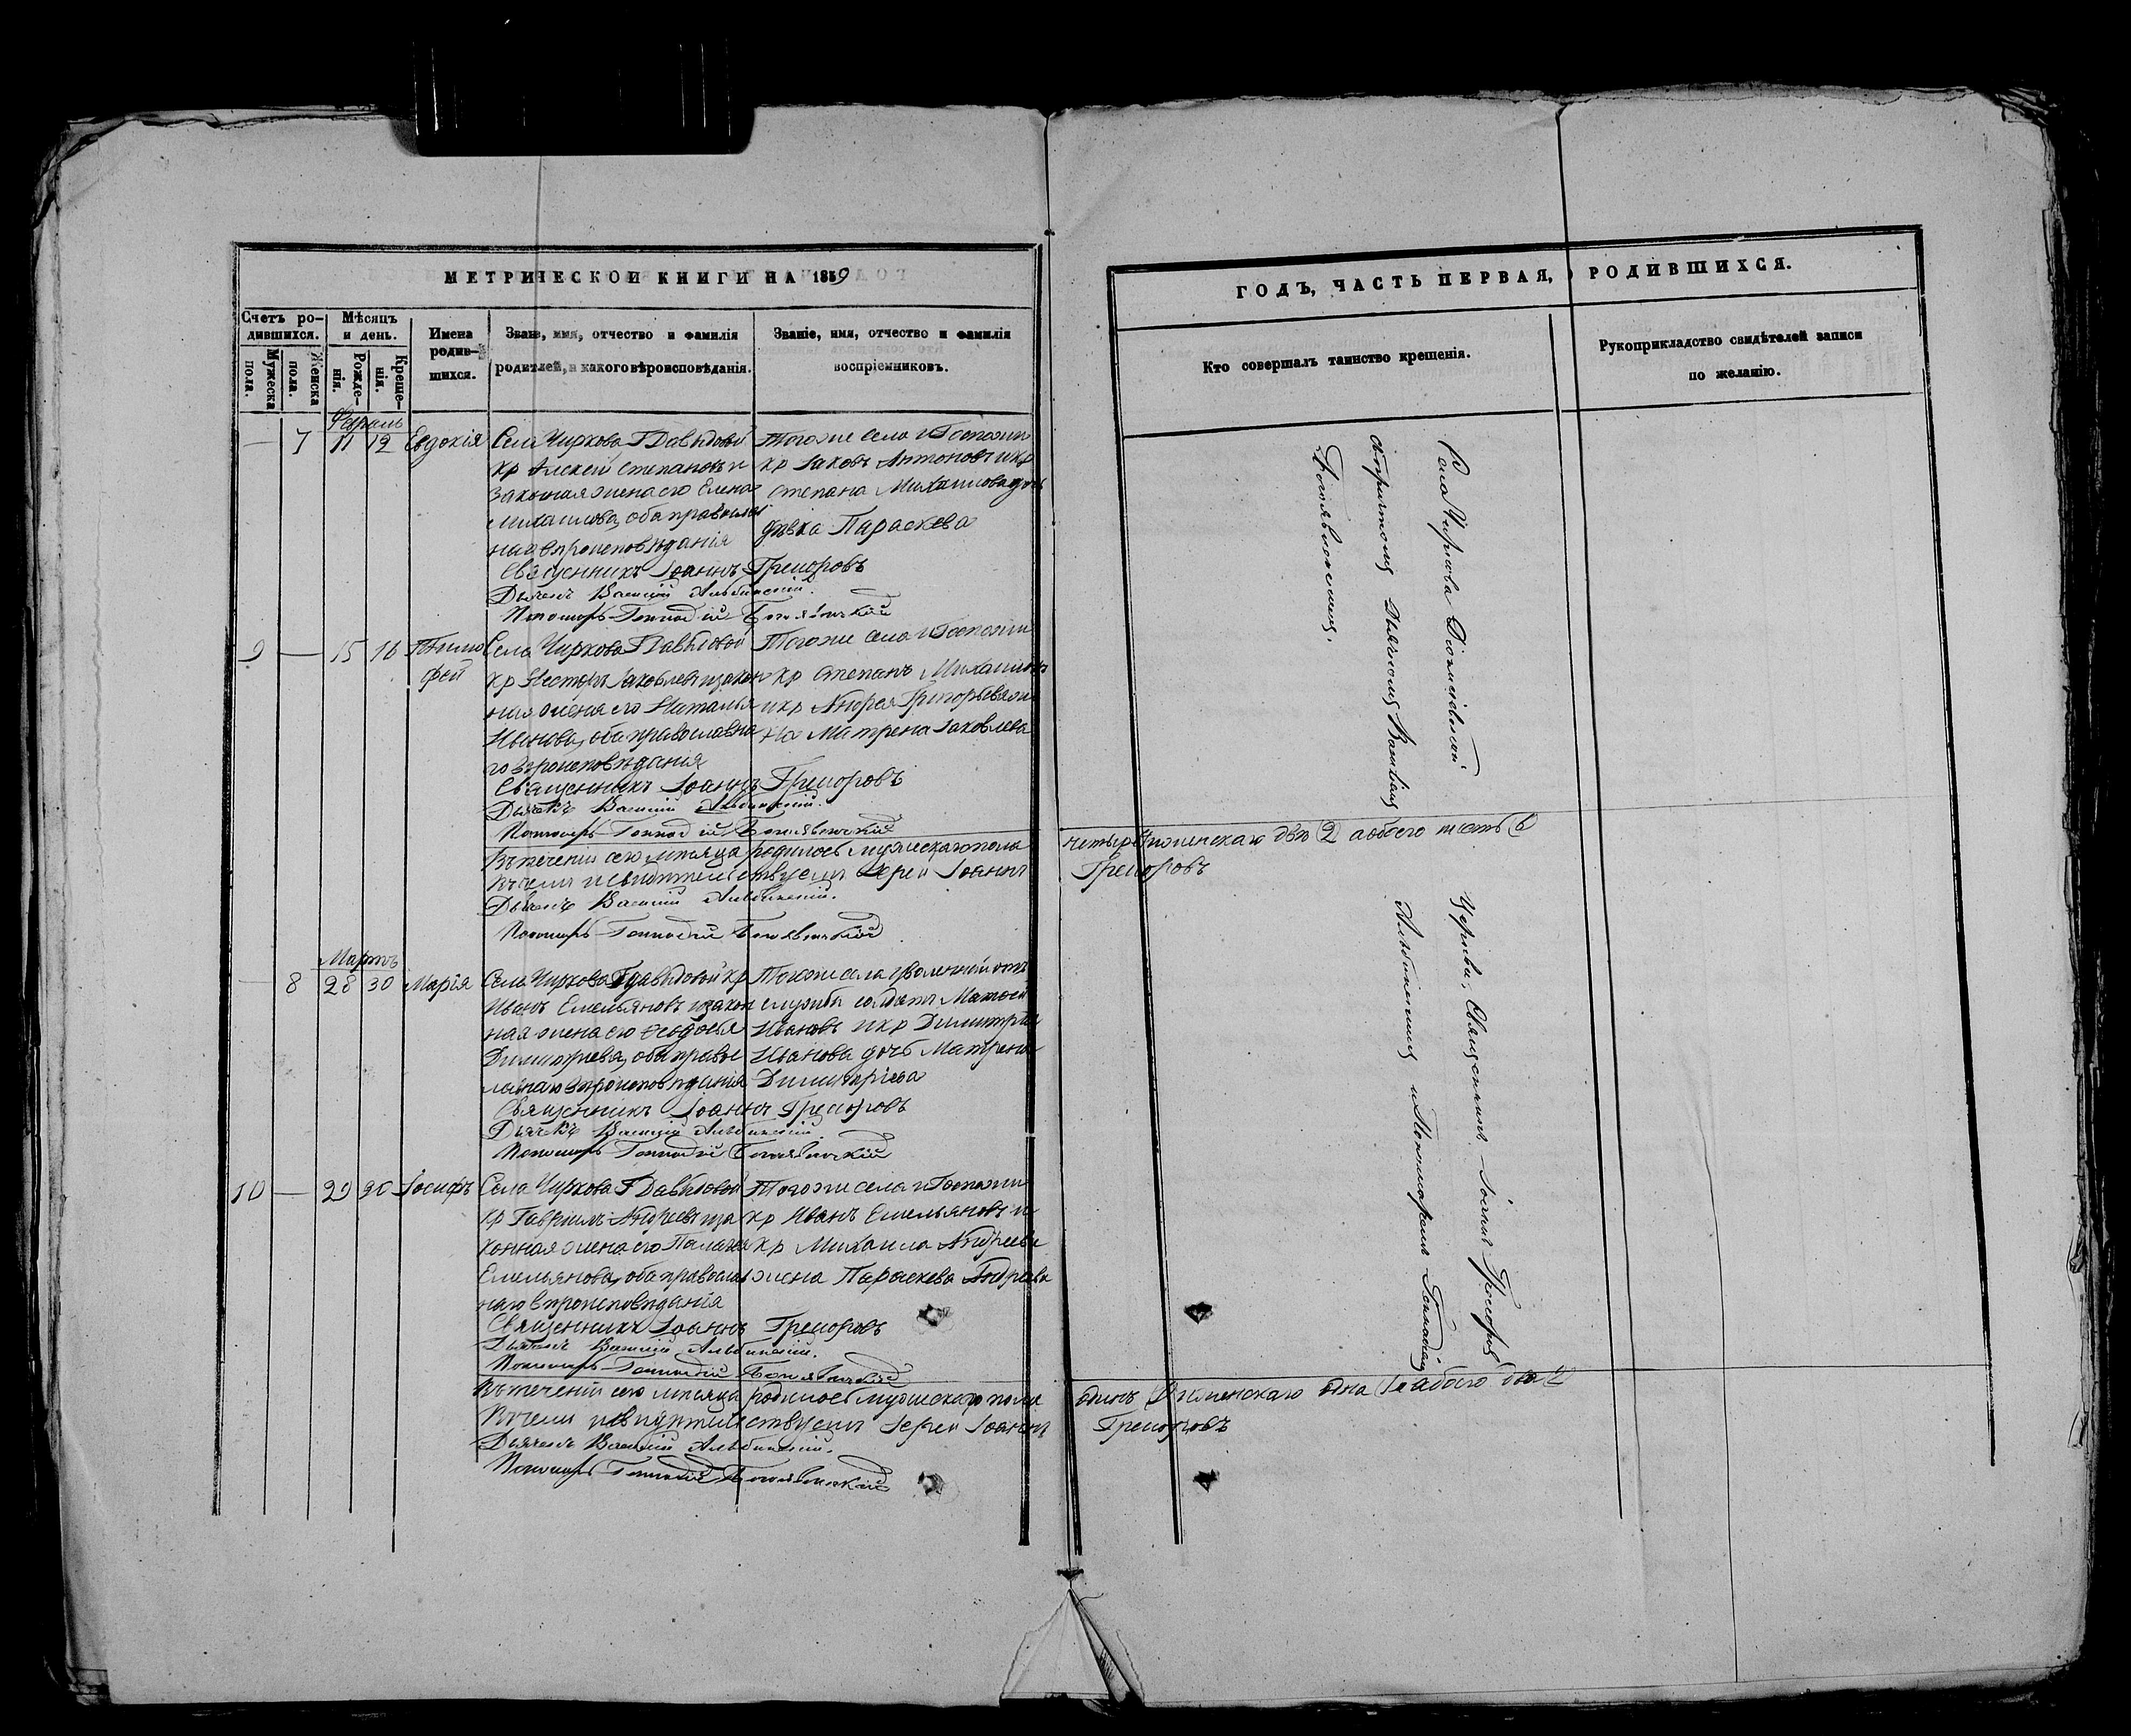 МЕТРИЧЕСКОЙ КНИГИ НА 1859
Счетъ ро-
дившихся.
Мѣсяцъ
и день.
Имена
родив-
шихся.
Званіе, имя, отчество и фамилія
родителей, и какого вѣроисповѣданія.
Званіе, имя, отчество и фамилія
воспріемниковъ.
Мужеска
пола.
Женска
пола.
Рожде-
нія.
Креще-
нія.
Февраль
— 7 11 12 Евдокія
Села Чиркова Г Давыдовой
кр Алексей Степановъ и
законная жена его Елена
Михаилова, оба православ
наго вѣроисповѣданія
Тогоже села и Госпожи
кр Іаковъ Антоновъ и кр
Степана Михаилова дочь
дѣвка Параскева
Священникъ Іоаннъ Григоровъ
Дьячекъ Василій Альбинскій.
Пономарь Геннадій Богоявленскій
9 — 15 16 Тимо
фей
Села Чиркова Г Давыдовой
кр Несторъ Іаковлевъ и закон
ная жена его Наталья
Иванова, оба православна
го вѣроисповѣданія
Тогоже села и Госпожи
кр Степанъ Михаиловъ
и кр Андрея Григорьева же
на Матрена Іаковлева
Священникъ Іоаннъ Григоровъ
Дьячекъ Василій Альбинскій.
Пономарь Геннадій Богоявленскій
Въ теченіи сего мѣсяца родилось мужескаго пола
въ чемъ и свидѣтельствуемъ Іерей Іоаннъ
Дьячекъ Василій Альбинскій.
Пономарь Геннадій Богоявленскій
Мартъ
— 8 28 30 Марія
Села Чиркова Г Давыдовой кр
Иванъ Емельяновъ и закон
ная жена его Ѳеодосья
Димитріева, оба правос
лавнаго вѣроисповѣданія
Тогоже села уволенный отъ
службы солдатъ
Ивановъ и кр Димитрія
Иванова дочь Матрена
Димитріева
Священникъ Іоаннъ Григоровъ
Дьячекъ Василій Альбинскій.
Пономарь Геннадій Богоявленскій
10 — 29 30 Іосифъ
Села Чиркова Г Давыдовой
кр Гавріилъ Андреевъ и за
конная жена его Пелагея
Емельянова, оба православ
наго вѣроисповѣданія
Тогоже села и Госпожи
кр Иванъ Емельяновъ и
кр Михаила Андреева
жена Параскева Андреева
Священникъ Іоаннъ Григоровъ
Дьячекъ Василій Альбинскій.
Пономарь Геннадій Богоявленскій
Въ теченіи сего мѣсяца родилось мужескаго пола
въ чемъ и свидѣтельствуемъ Іерей Іоаннъ
Дьячекъ Василій Альбинскій.
Пономарь Геннадій Богоявленскій
ГОДЪ, ЧАСТЬ ПЕРВАЯ, О РОДИВШИХСЯ.
Кто совершалъ таинство крещенія.
Рукоприкладство свидѣтелей записи
по желанію.
Села Чиркова
съ причтомъ Дьячкомъ Василіемъ
Богоявленскимъ.
четыре женскаго двѣ (2) а обоего шесть 6
Григоровъ
Церкви, Священникъ Іоаннъ Григоровъ
Альбинскимъ и Пономаремъ Геннадіемъ
одинъ женскаго одна 1 а обоего два 2
Григоровъ